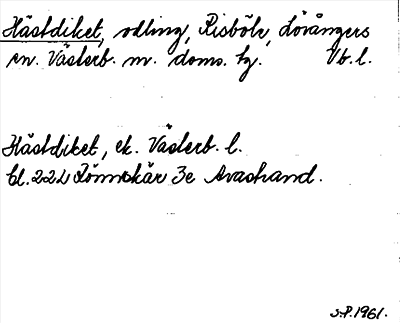 Hästdiket, odling, Risböle, Lövångers
sn. Västerb. m. doms. hg. Vb. l.
Hästdiket, ek. Västerb. l.
bl. 22L Rönnskär 3e Avastrand.
S.P. 1961.